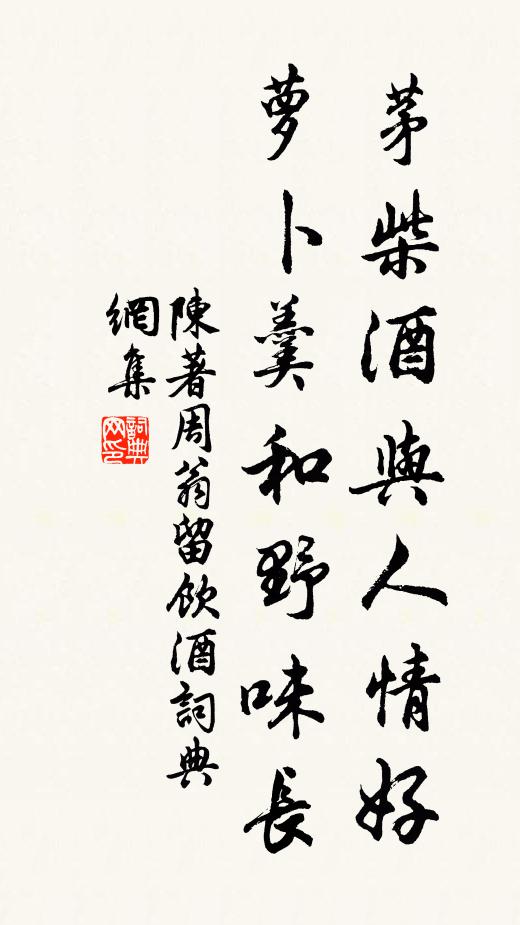 茅柴酒與人情好
萝卜羹和野味長
陳著周翁留飲酒詞典
網集
詞典
网印